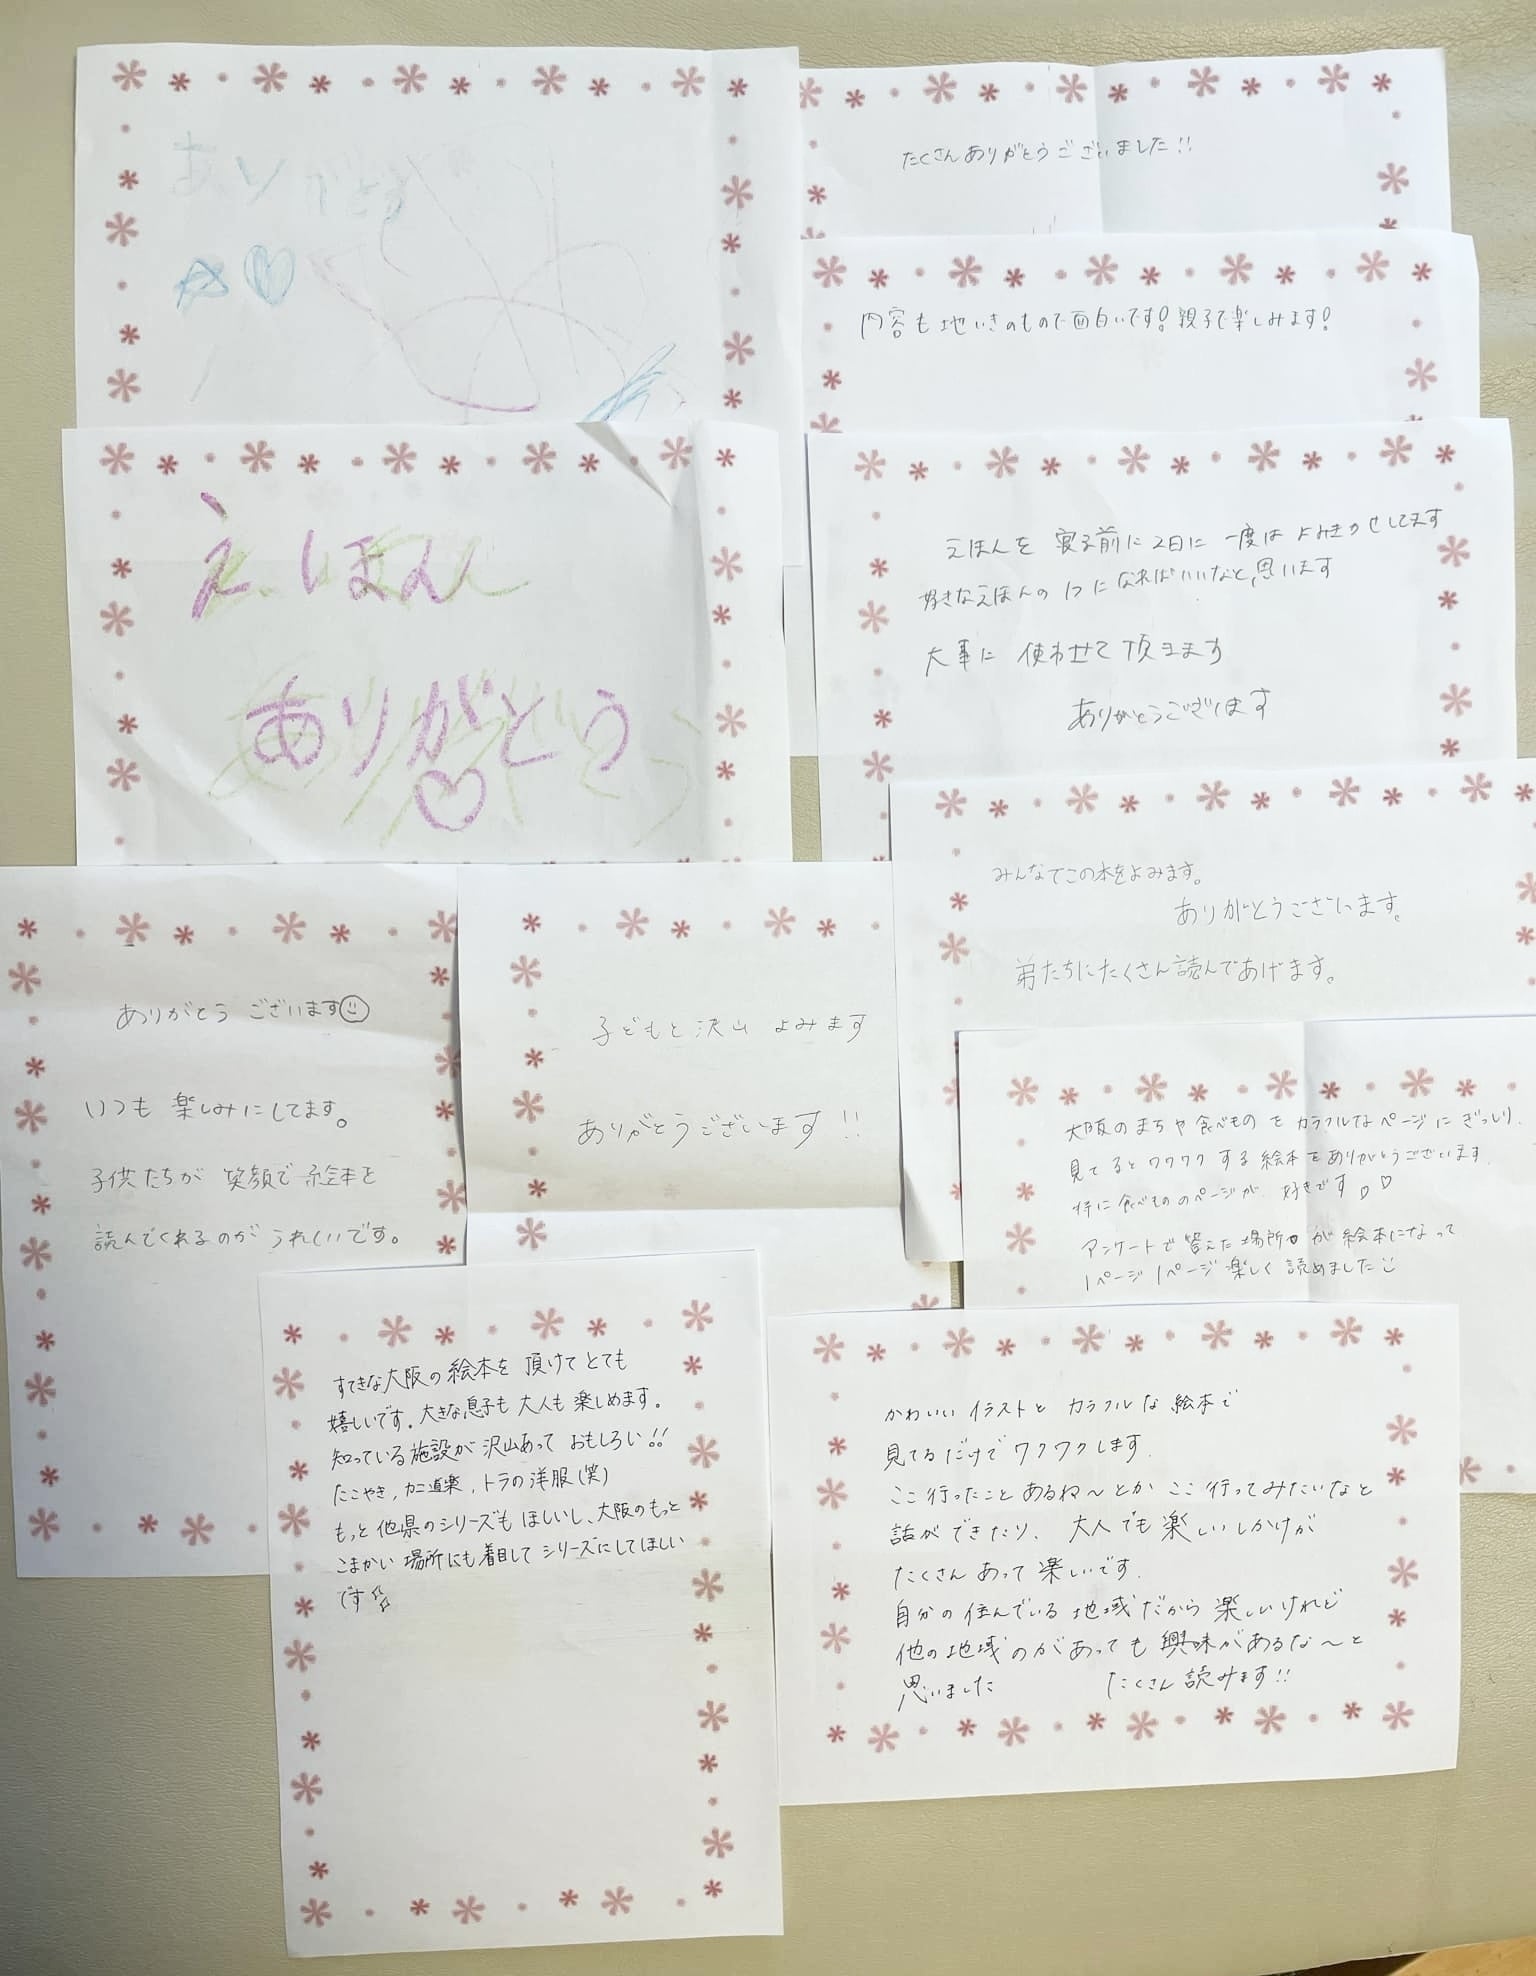 ありがとう
たくさんありがとうございました!!
内容も地いきのもので面白いです!親子で楽しみます!
えほん
ありがとう
えほんを 寝る前に 2日に 一度は よみきかせしてます
好きなえほんの1つに なればいいなと思います
大事に 使わせて頂きます
ありがとうございます
みんなでこの本をよみます。
ありがとうございます。
弟たちにたくさん読んであげます。
ありがとう ございます
いつも 楽しみにしてます。
子供たちが 笑顔で 絵本を
読んでくれるのが うれしいです。
子どもと沢山 よみます
ありがとうございます!!
大阪のまちや食べものをカラフルなページにぎっしり
見てるとワクワクする絵本をありがとうございます
特に食べもののページが好きです♡♡
アンケートで答えた場所が絵本になって
1ページ1ページ楽しく読めました
すてきな大阪の絵本を 頂けてとても
嬉しいです。大きな息子も大人も楽しめます。
知っている施設が沢山あって おもしろい!!
たこやき,カニ道楽,トラの洋服(笑)
もっと他県のシリーズもほしいし、大阪のもっと
こまかい場所にも着目してシリーズにしてほしい
です
かわいいイラストとカラフルな絵本で
見てるだけでワクワクします.
ここ行ったことあるね〜とか ここ行ってみたいなと
話ができたり、大人でも楽しいしかけが
たくさんあって楽しいです.
自分の住んでいる地域だから楽しいけれど
他の地域のがあっても興味があるな〜と
思いました たくさん読みます!!